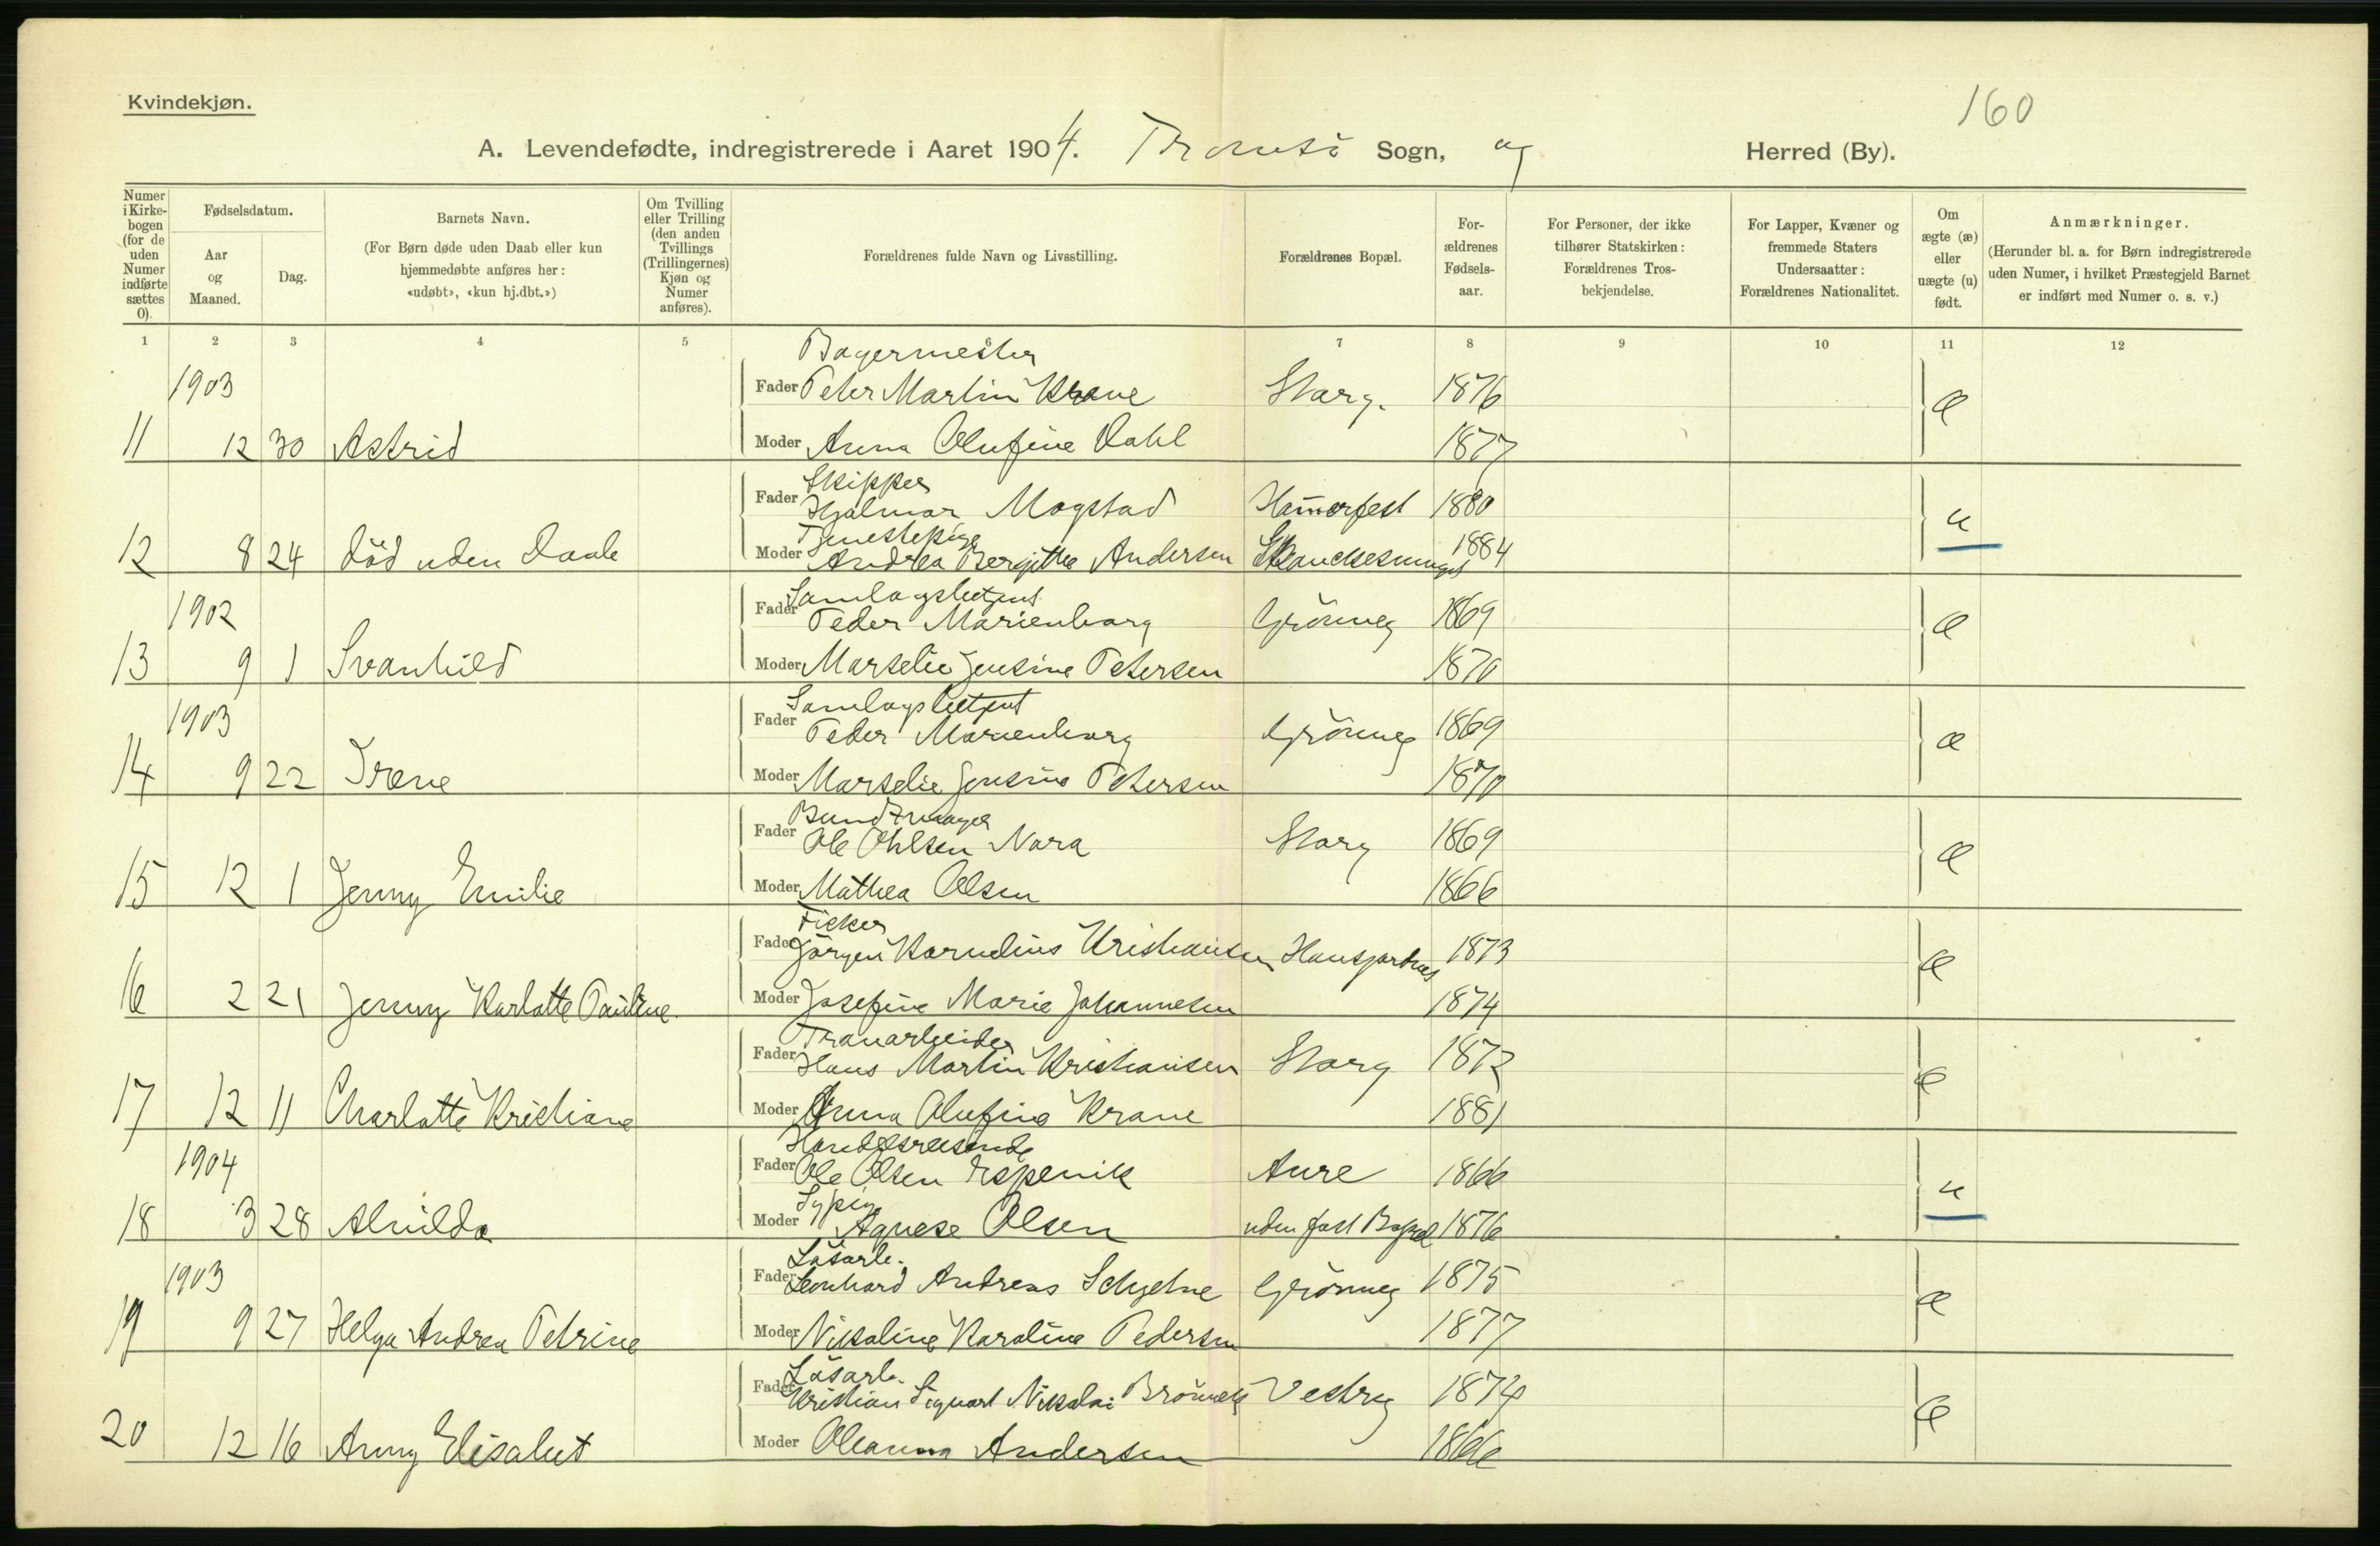 Kvindekjøn.
160
A. Levendefødte, indregistrerede i Aaret 1904. Tromsö Sogn, og Herred (By).
Numer i Kirkebogen (for de uden Numer indførte sættes 0).
Fødselsdatum.
Aar og Maaned.
Dag.
Barnets Navn.
(For Børn døde uden Daab eller kun hjemmedøbte anføres her: «udøbt», «kun hj.dbt.»)
Om Tvilling eller Trilling (den anden Tvillings (Trillingernes) Kjøn og Numer anføres).
Forældrenes fulde Navn og Livsstilling.
Forældrenes Bopæl.
Forældrenes Fødselsaar.
For Personer, der ikke tilhører Statskirken: Forældrenes Trosbekjendelse.
For Lapper, Kvæner og fremmede Staters Undersaatter: Forældrenes Nationalitet.
Om ægte (æ) eller uægte (u) født.
Anmærkninger.
(Herunder bl. a. for Børn indregistrerede uden Numer, i hvilket Præstegjeld Barnet er indført med Numer o. s. v.)
1 2 3 4 5 7 8 9 10 11 12
Bagermester
1903 Fader Peter Martin Krane Storg. 1876 æ
11 12 30 Astrid Moder Anna Olufine Dahl 1877
Skipper
Fader Hjalmar Mogstad Hamerfest 1880 u
Tjenestepige
12 8 24 död uden Daab Moder Andrea Bergitha Andersen 1884
1902 Fader Peder Marienborg Grönneg 1869 æ
13 9 1 Svanhild Moder Marselie Jensine Petersen 1870
1903 Fader Peder Marienborg Grönneg 1869 æ
14 9 22 Irene Moder Marselie Jensine Petersen 1870
Bundtmager
Fader Ole Ohlsen Nora Storg 1869 æ
15 12 1 Jenny Emilie Moder Mathea Olsen 1866
Fisker
Fader Jörgen Kornelius Kristiansen Hansjordnes 1873 æ
16 2 21 Jenny Karlotte Pauline Moder Josefine Marie Johannesen 1874
Tranarbeider
Fader Hans Martin Kristiansen Storg 1872 æ
17 12 11 Charlotte Kristiane Moder Anna Olufine Krane 1881
Handelsreisende
1904 Fader Ole Olsen Espenik Aure 1866 u
Sypige
18 3 28 Alvilda Moder Agnese Olsen uden fast Bopæl 1876
Lösarb.
1903 Fader Leonhard Andreas Schjelne Grönneg 1875 æ
19 9 27 Helga Andrea Petrine Moder Nikoline Karoline Pedersen 1877
Lösarb.
Fader Kristian Sigvart Nikolai Vestreg 1874 æ
20 12 16 Anny Elisabet Moder Oleanna Andersen 1866